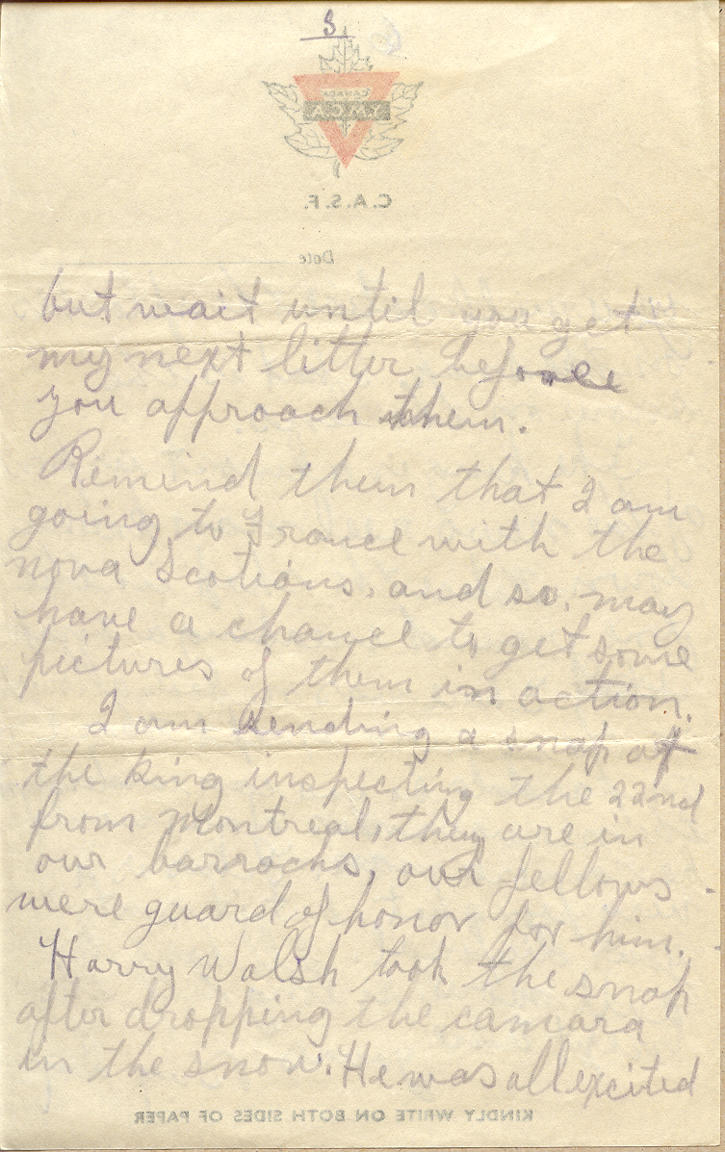 3
CANADA
YMCA
C.A.S.F.
Date
but wait until you get
my next litter before
you approach them.
Remind them that I am
going to France with the
nova Scotians, and so, may
have a chance to get some
pictures of them in action.
I am sending a snap of
the king inspecting the 22nd
from Montreal, they are in
our barracks, our fellows
were guard of honor for him.
Harry Walsh took the snap
after dropping the camara
in the snow. He was all excited
KINDLY WRITE ON BOTH SIDES OF PAPER